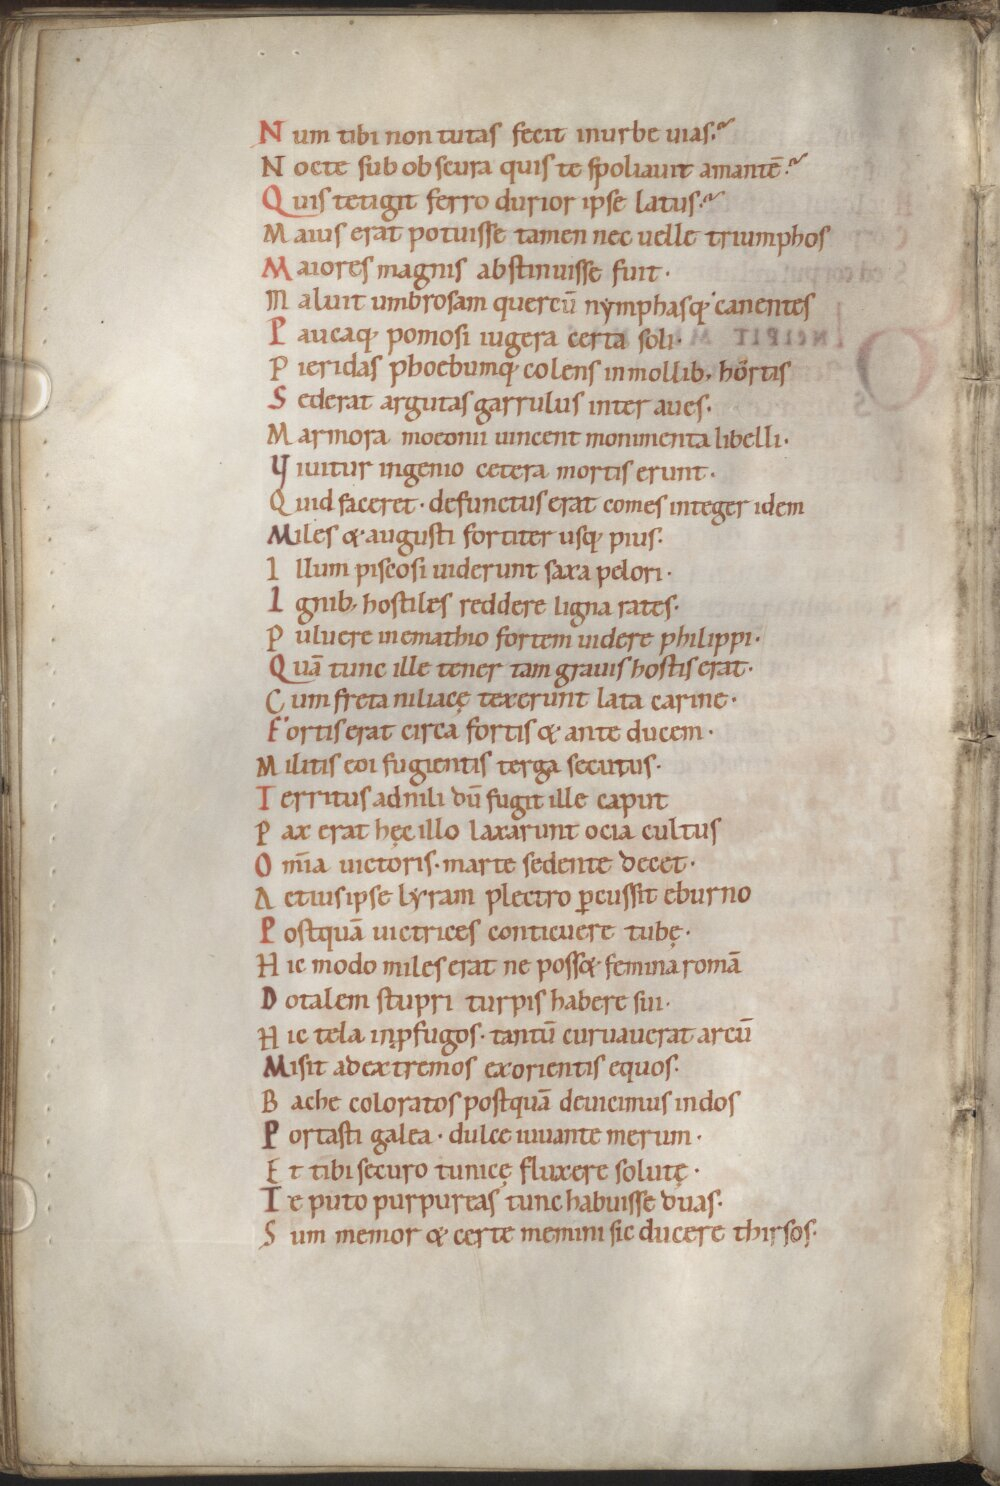 Num tibi non tutas fecit inurbe uias?
Nocte sub obscura quis te spoliauit amantē?
Quis tetigit ferro durior ipse latus?
Maius erat potuisse tamen nec uelle triumphos
Maiores magnis abstinuisse fuit·
Maluit umbrosam quercū nymphasq; canentes
Paucaq; pomosi iugera certa soli·
Pieridas phoebumq; colens inmollib; hortis
Sederat argutas garrulus inter aues·
Marmora moeonii uincent monimenta libelli·
Viuitur ingenio cetera mortis erunt·
Quid faceret· defunctus erat comes integer idem
Miles & augusti fortiter usq; pius·
Illum piscosi uiderunt saxa pelori·
Ignib; hostiles reddere ligna rates·
Puluere inemathio fortem uidere philippi·
Quā tunc ille tener tam grauis hostis erat·
Cum freta niliacę texerunt lata carine·
Fortis erat circa fortis & ante ducem·
Militis eoi fugientis terga secutus·
Territus adnili dū fugit ille caput
Pax erat hęc illo laxarunt ocia cultus
Om̄ia uictoris· marte sedente decet·
Actius ipse lyram plectro ꝑcussit eburno
Postquā uictrices conticuere tubę·
Hic modo miles erat ne poss& femina romā
Dotalem stupri turpis habere sui·
Hic tela inꝓfugos· tantū curuauerat arcū
Misit ad extremos exorientis equos·
Bache coloratos postquā deuicimus indos
Portasti galea· dulce iuuante merum·
Et tibi securo tunicę fluxere solutę·
Te puto purpureas tunc habuisse duas·
Sum memor & certe memini sic ducere thirsos·